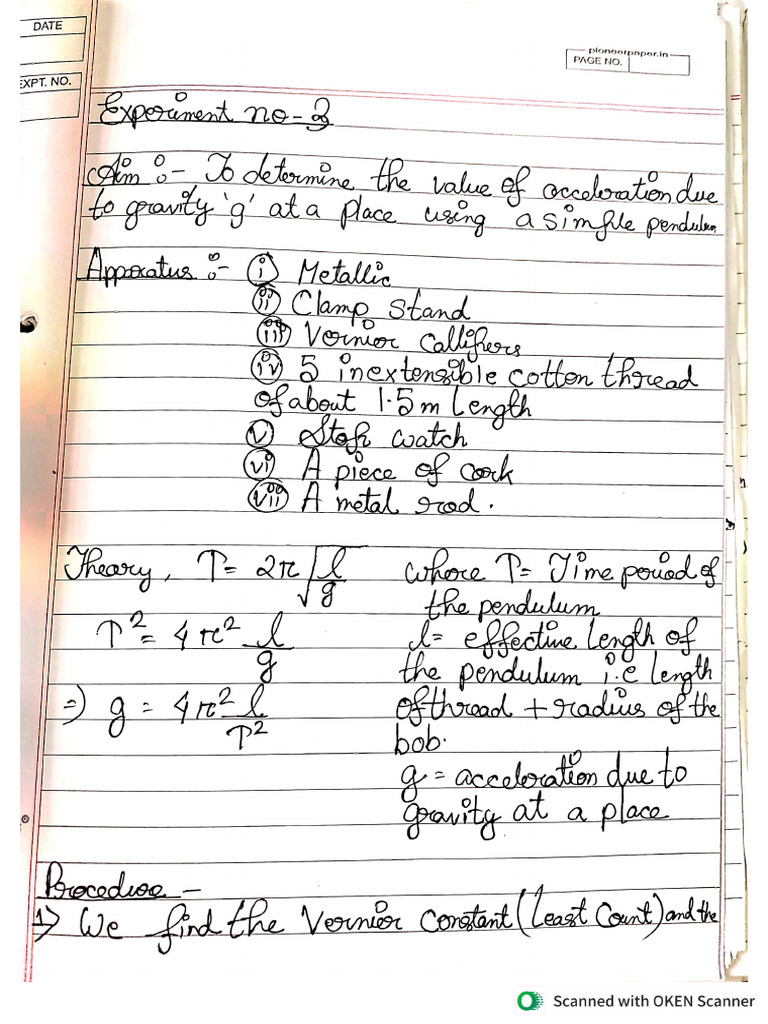 DATE
pioneerpaper.in
PAGE NO.
EXPT. NO.
Experiment no - 3
Aim :- To determine the value of acceleration due
to gravity 'g' at a place using a simple pendulum
Apparatus :- (i) Metallic
(ii) Clamp stand
(iii) Vernier Callipers
(iv) 5 inextensible cotton thread
of about 1.5m length
(v) Stop watch
(vi) A piece of cork
(vii) A metal rod.
Theory, T = 2π√l/g where T = Time period of
the pendulum
T² = 4π² l/g l = effective length of
the pendulum i.e length
=> g = 4π² l/T² of thread + radius of the
bob.
g = acceleration due to
gravity at a place
Procedure -
1> We find the Vernier constant (Least Count) and the
Scanned with OKEN Scanner